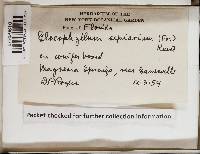 HERBARIUM OF THE
NEW YORK BOTANICAL GARDEN
Florida
Gloeophyllum sepiarium (Fr.)
Karst
on conifer wood
Magnesia Springs, near Gainesville
Packet checked for further collection information